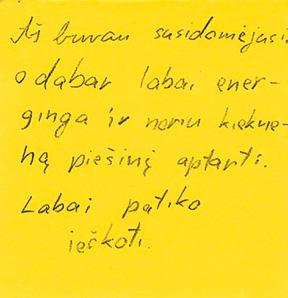 Aš buvau susidomėjusi,
o dabar labai ener-
ginga ir noriu kiekvie-
ną piešinį aptarti.
Labai patiko
ieškoti.